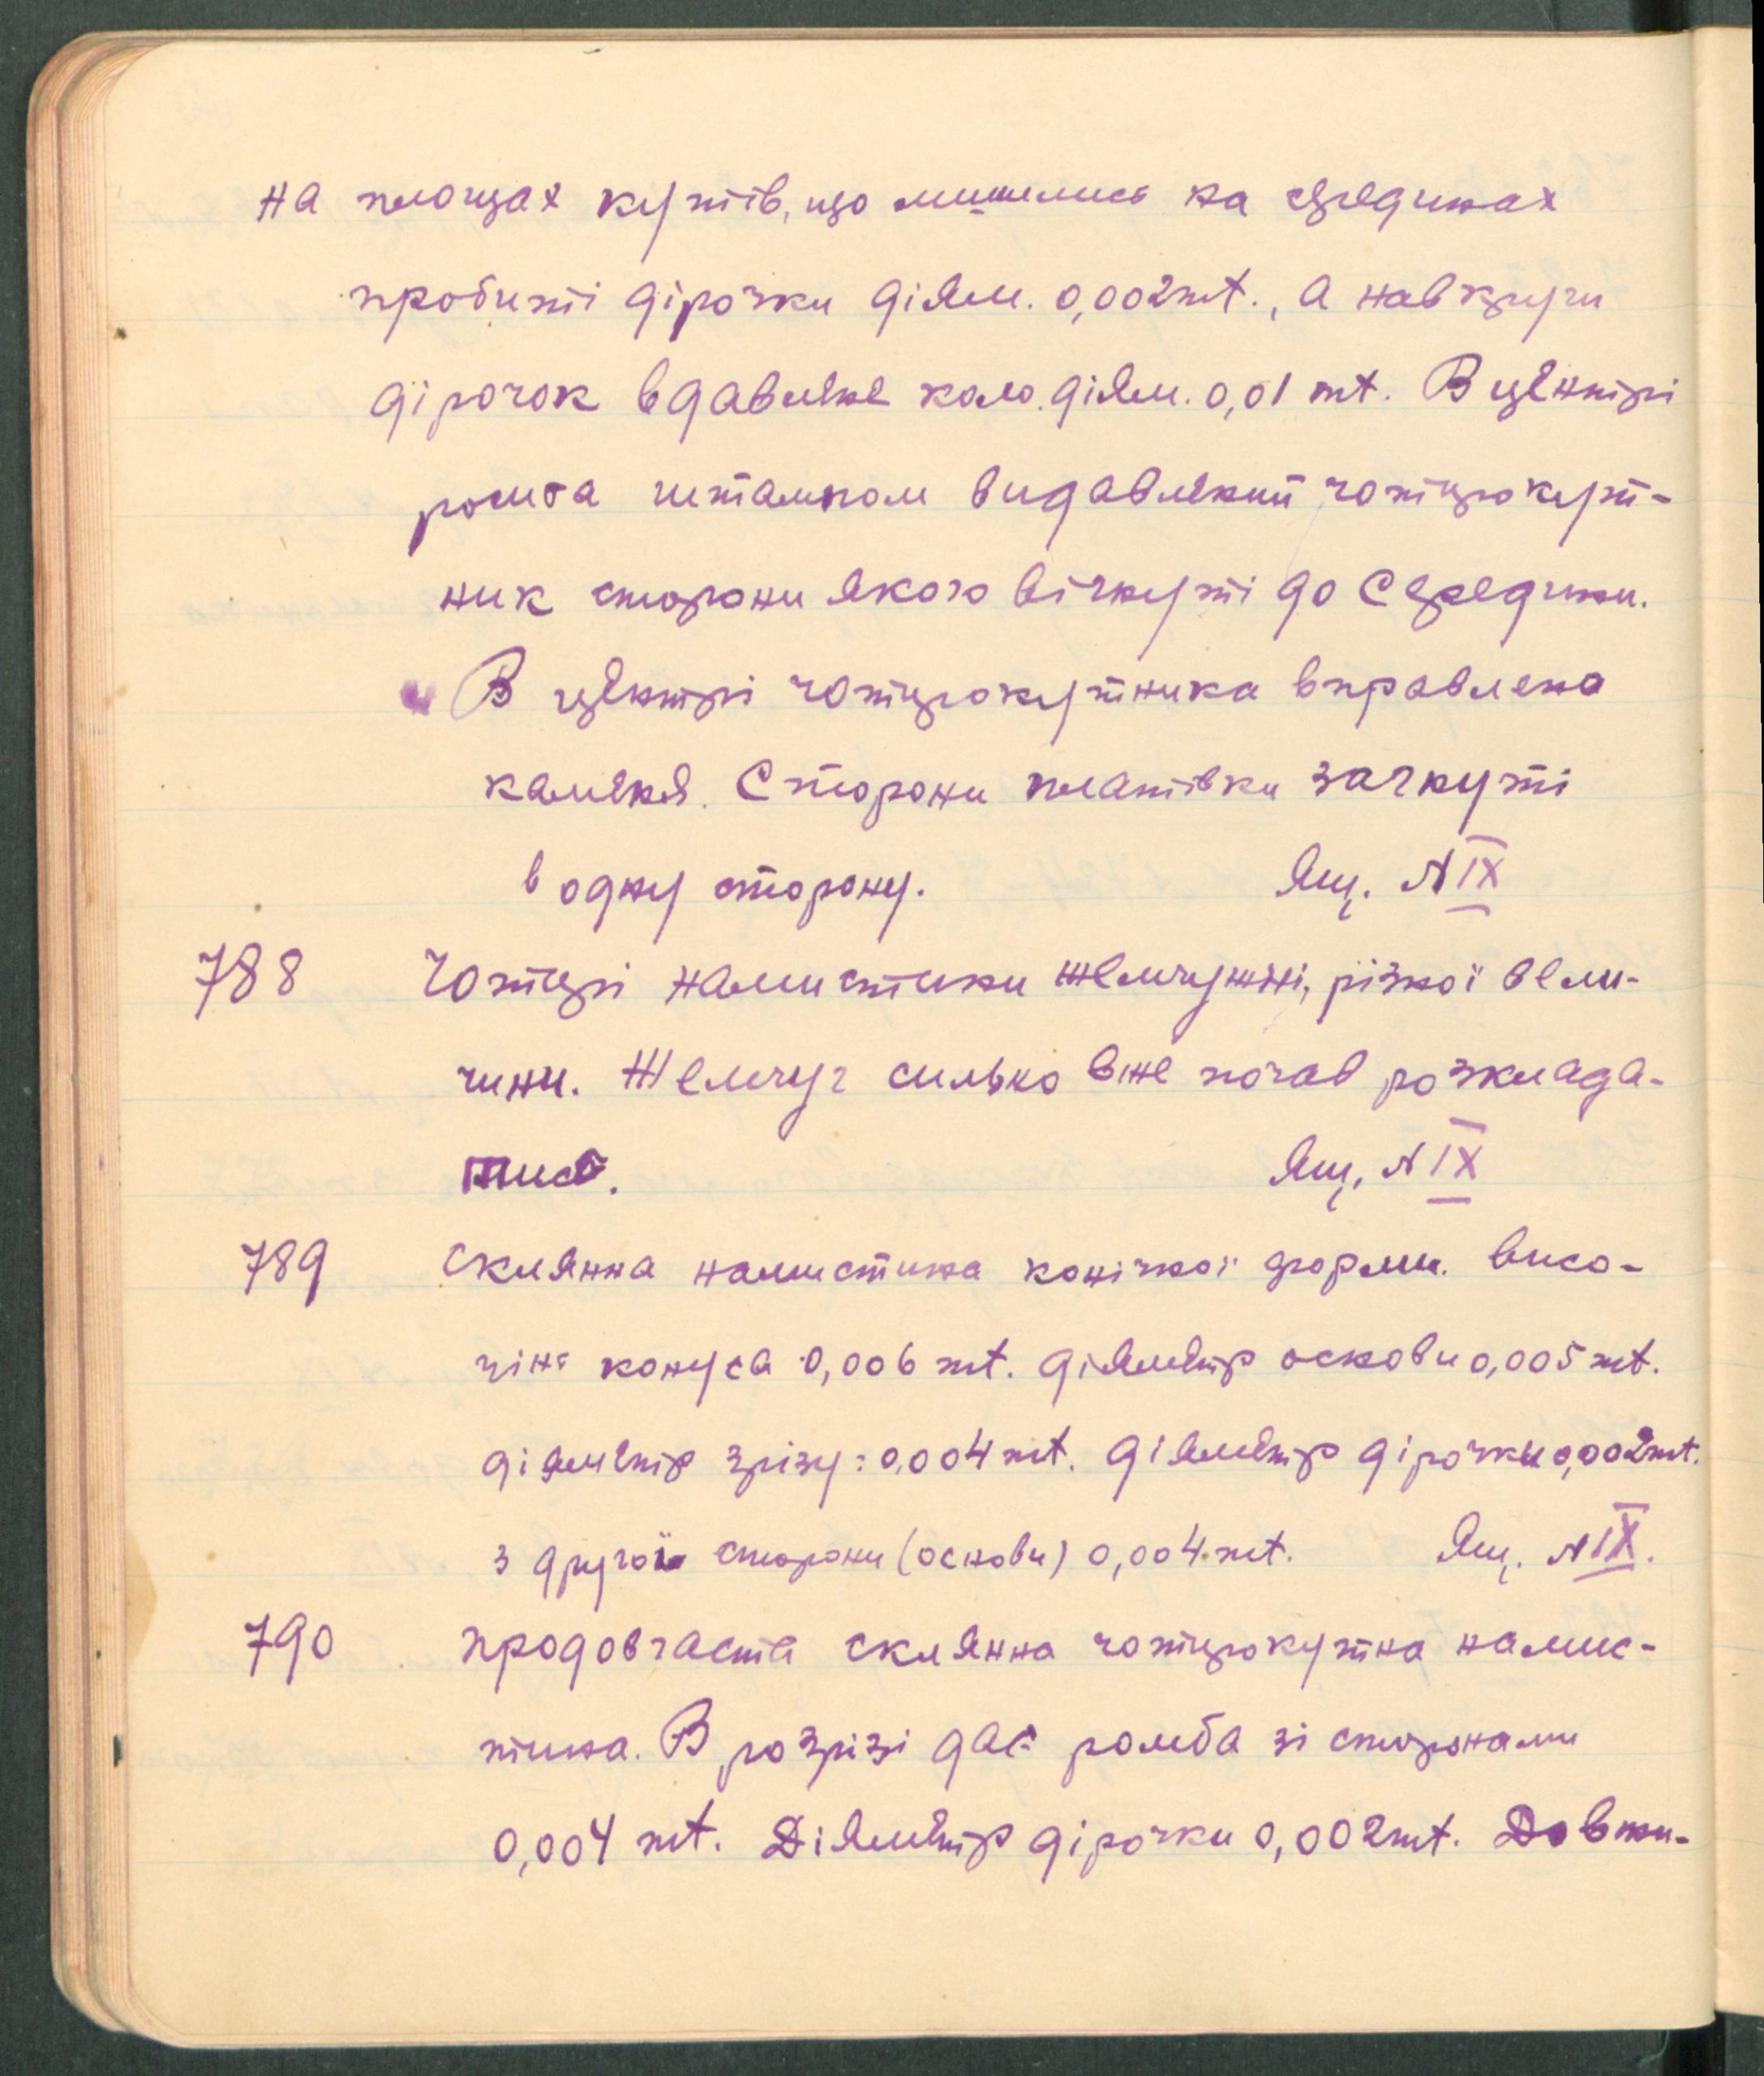 на площах кутів, що лишились на серединах
пробиті дірочки діям. 0,002 mt., а навкруги
дірочок вдавлене коло діям. 0,01 mt. В центрі
ромба штампом видавлений чотирокут-
ник сторони якого вігнуті до середини.
В центрі чотирокутника вправлена
каменя. Сторони платівки загнуті
в одну сторону. Ящ. N IX
788 Чотирі намистини жемчужні, різної вели-
чини. Жемчуг сильно вже почав розклада-
тись. Ящ. N IX
789 Склянна намистина конічної форми. Висо-
чінь конуса 0,006 mt. діяметр основи 0,005 mt.
діяметр зрізу: 0,004 mt. діяметр дірочки 0,002 mt.
з другої сторони (основи) 0,004 mt. Ящ. N IX.
790 Продовгаста склянна чотирокутна намис-
тина. В розрізі дає ромба зі сторонами
0,004 mt. Діяметр дірочки 0,002 mt. Довжи-